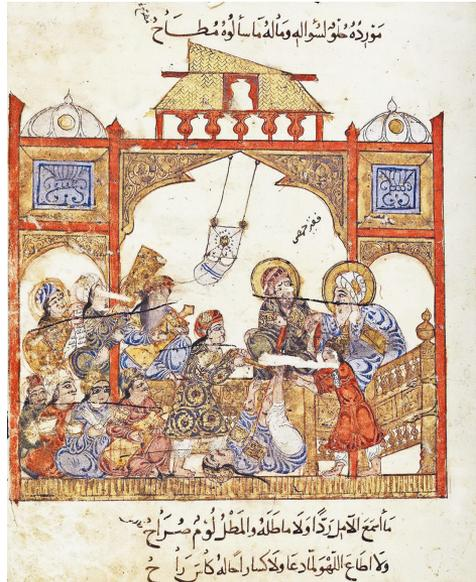 مَوْرِدُهُ حُلْوٌ لسُؤَّالِهِ وَمَالُهُ مَا سَأَلُوهُ مُطَاحْ
مَا أَسْمَعَ الآمِلَ رَدًّا وَلَا مَاطَلَهُ وَالمَطْلُ لُؤْمٌ صُرَاحْ
وَلَا أَطَاعَ اللَّهْوَ لَمَّا دَعَا وَلَا كَسَا رَاحًا لَهُ كَأْسَ رَاحْ